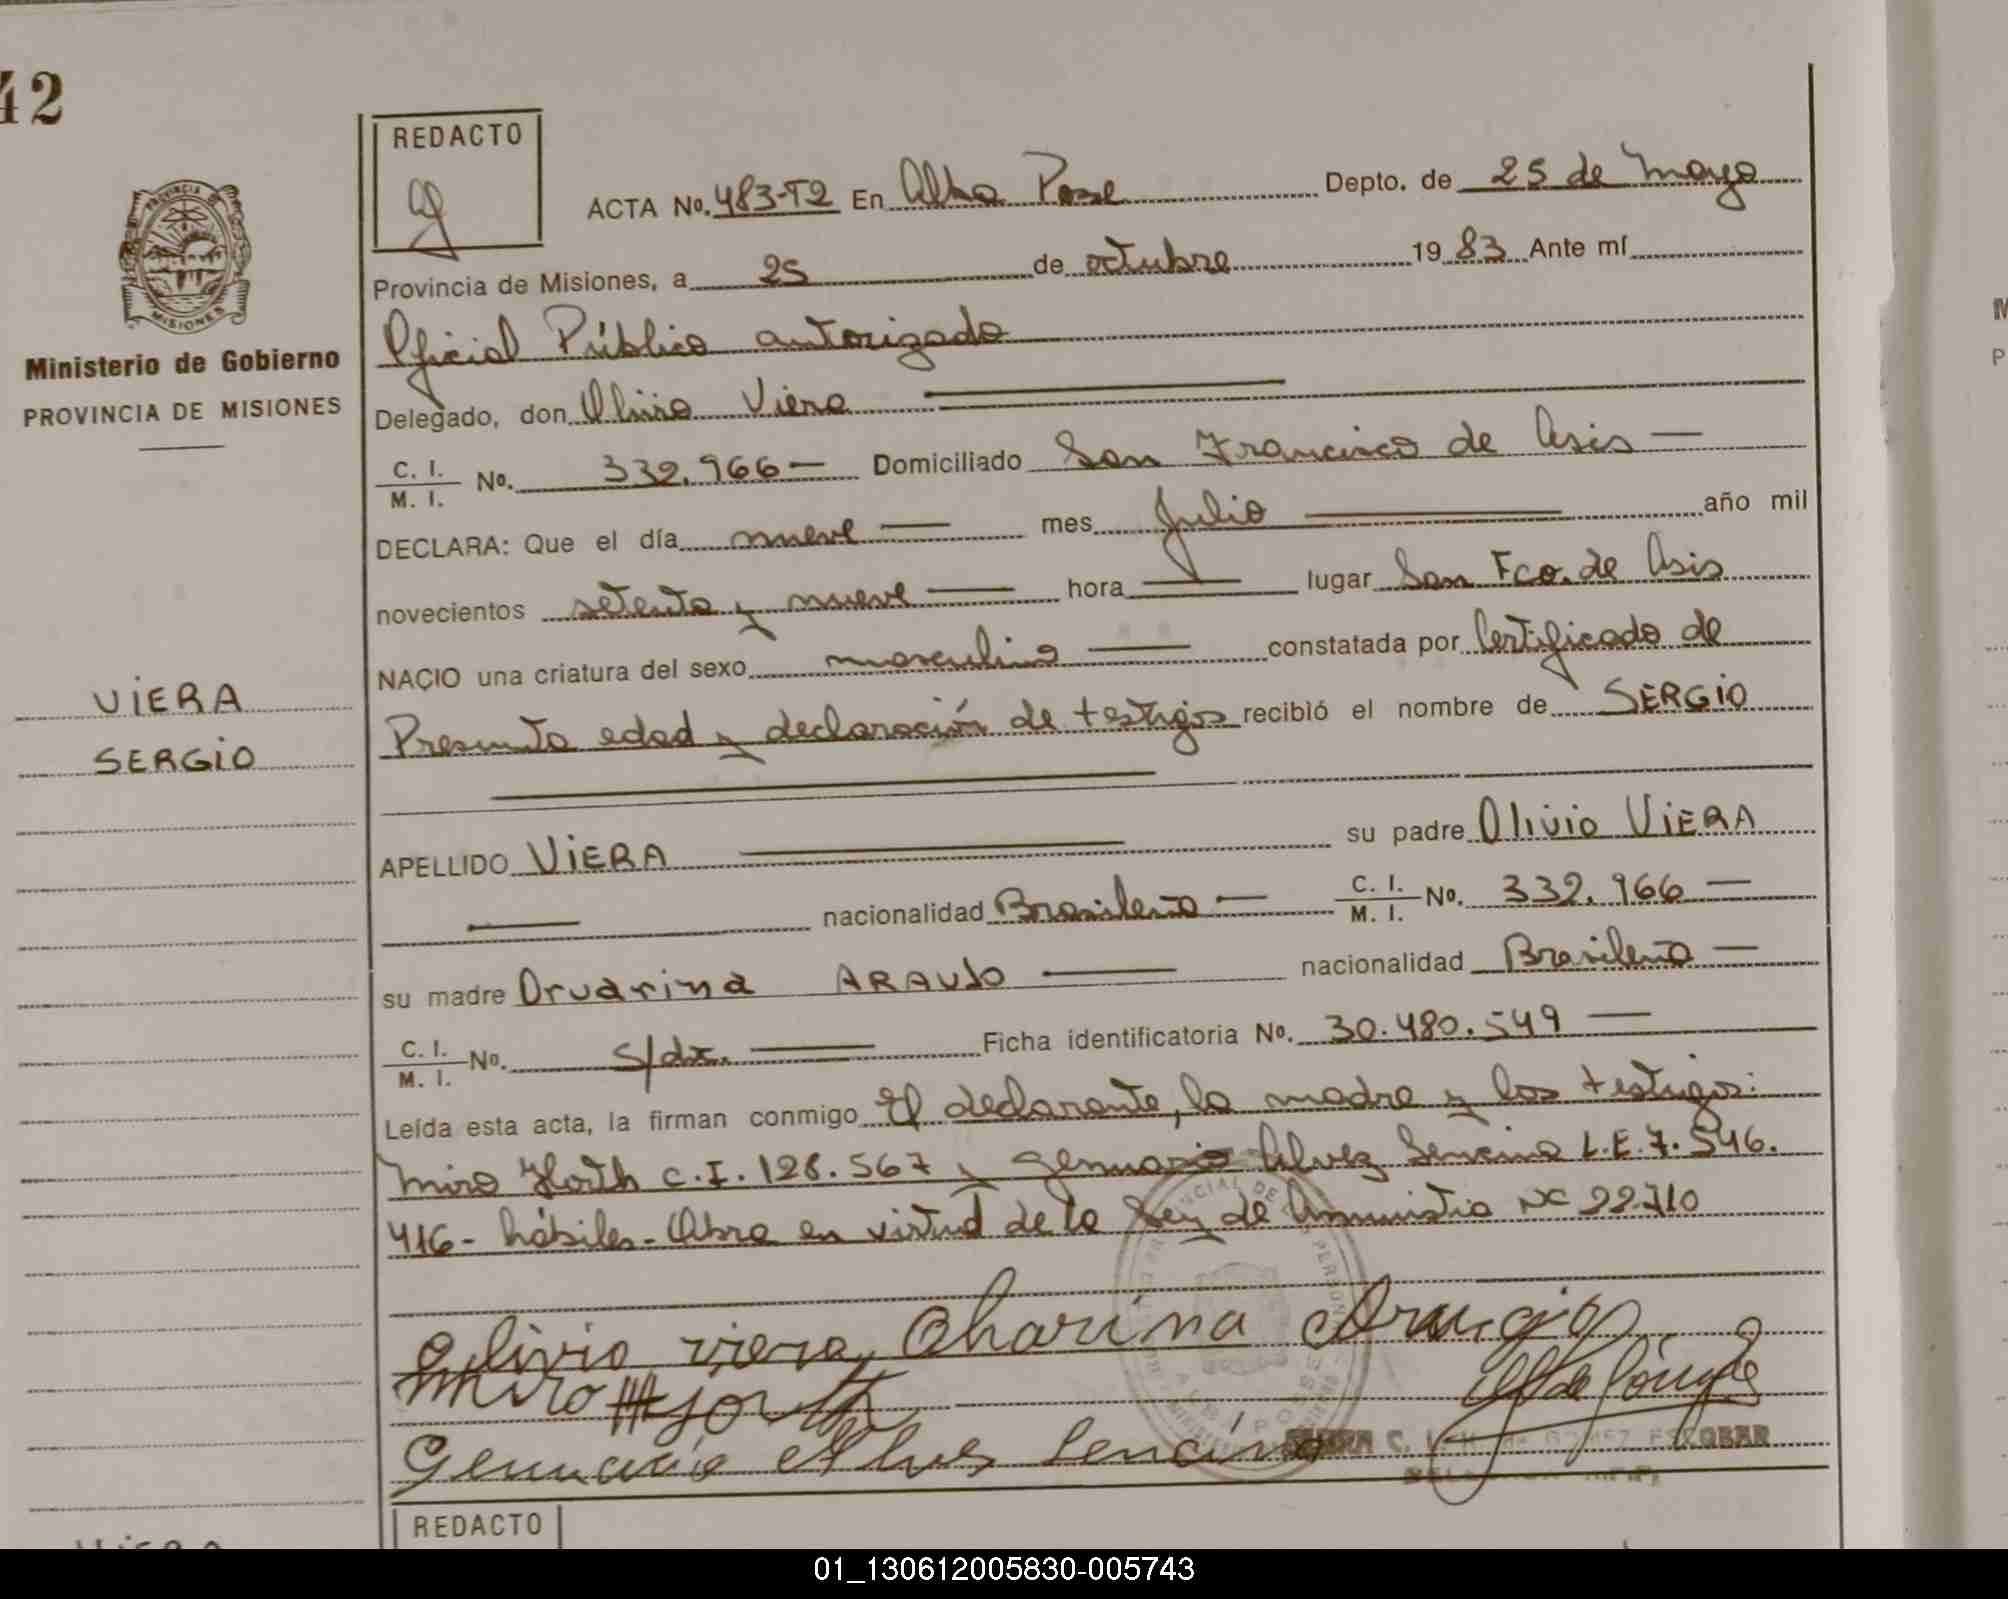 42
REDACTO
ACTA No. 483-T2 En Alba Pose Depto. de 25 de Mayo
Provincia de Misiones, a 25 de octubre 1983 Ante mí
Oficial Público autorizado
PROVINCIA DE
MISIONES
Ministerio de Gobierno
PROVINCIA DE MISIONES
Delegado, don Olivio Viera
C. I. / M. I. No. 332.966 — Domiciliado San Francisco de Asis —
DECLARA: Que el día nueve — mes Julio — año mil
novecientos setenta y nueve — hora — lugar San Fco. de Asis
NACIO una criatura del sexo masculino — constatada por Certificado de
Presunta edad y declaración de testigos recibió el nombre de SERGIO
VIERA
SERGIO
APELLIDO VIERA — su padre Olivio VIERA
— nacionalidad Brasileña — C. I. / M. I. No. 332.966 —
su madre Orvarina ARAUJO — nacionalidad Brasileña —
C. I. / M. I. No. s/dz. — Ficha identificatoria No. 30.480.549 —
Leída esta acta, la firman conmigo El declarante, la madre y los testigos:
Miro Horth C.I. 128.567 y Gennario Alvez Sencina L.E. 7.546.
416 - hábiles - Abra en virtud de la Ley de Amnistia Nº 22.710
Olivio viera, Oharina Araujo
Miro Horth
Gennario Alves Lencina
GOMEZ ESCOBAR
REDACTO
VIERA
01_130612005830-005743